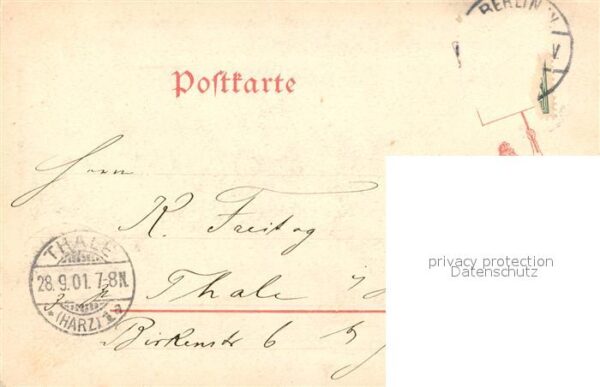 BERLIN W.
Poſtkarte
Herrn
K. Freitag
THALE
28.9.01.7-8N.
*(HARZ)
Thale
Birkenstr 6
privacy protection
Datenschutz